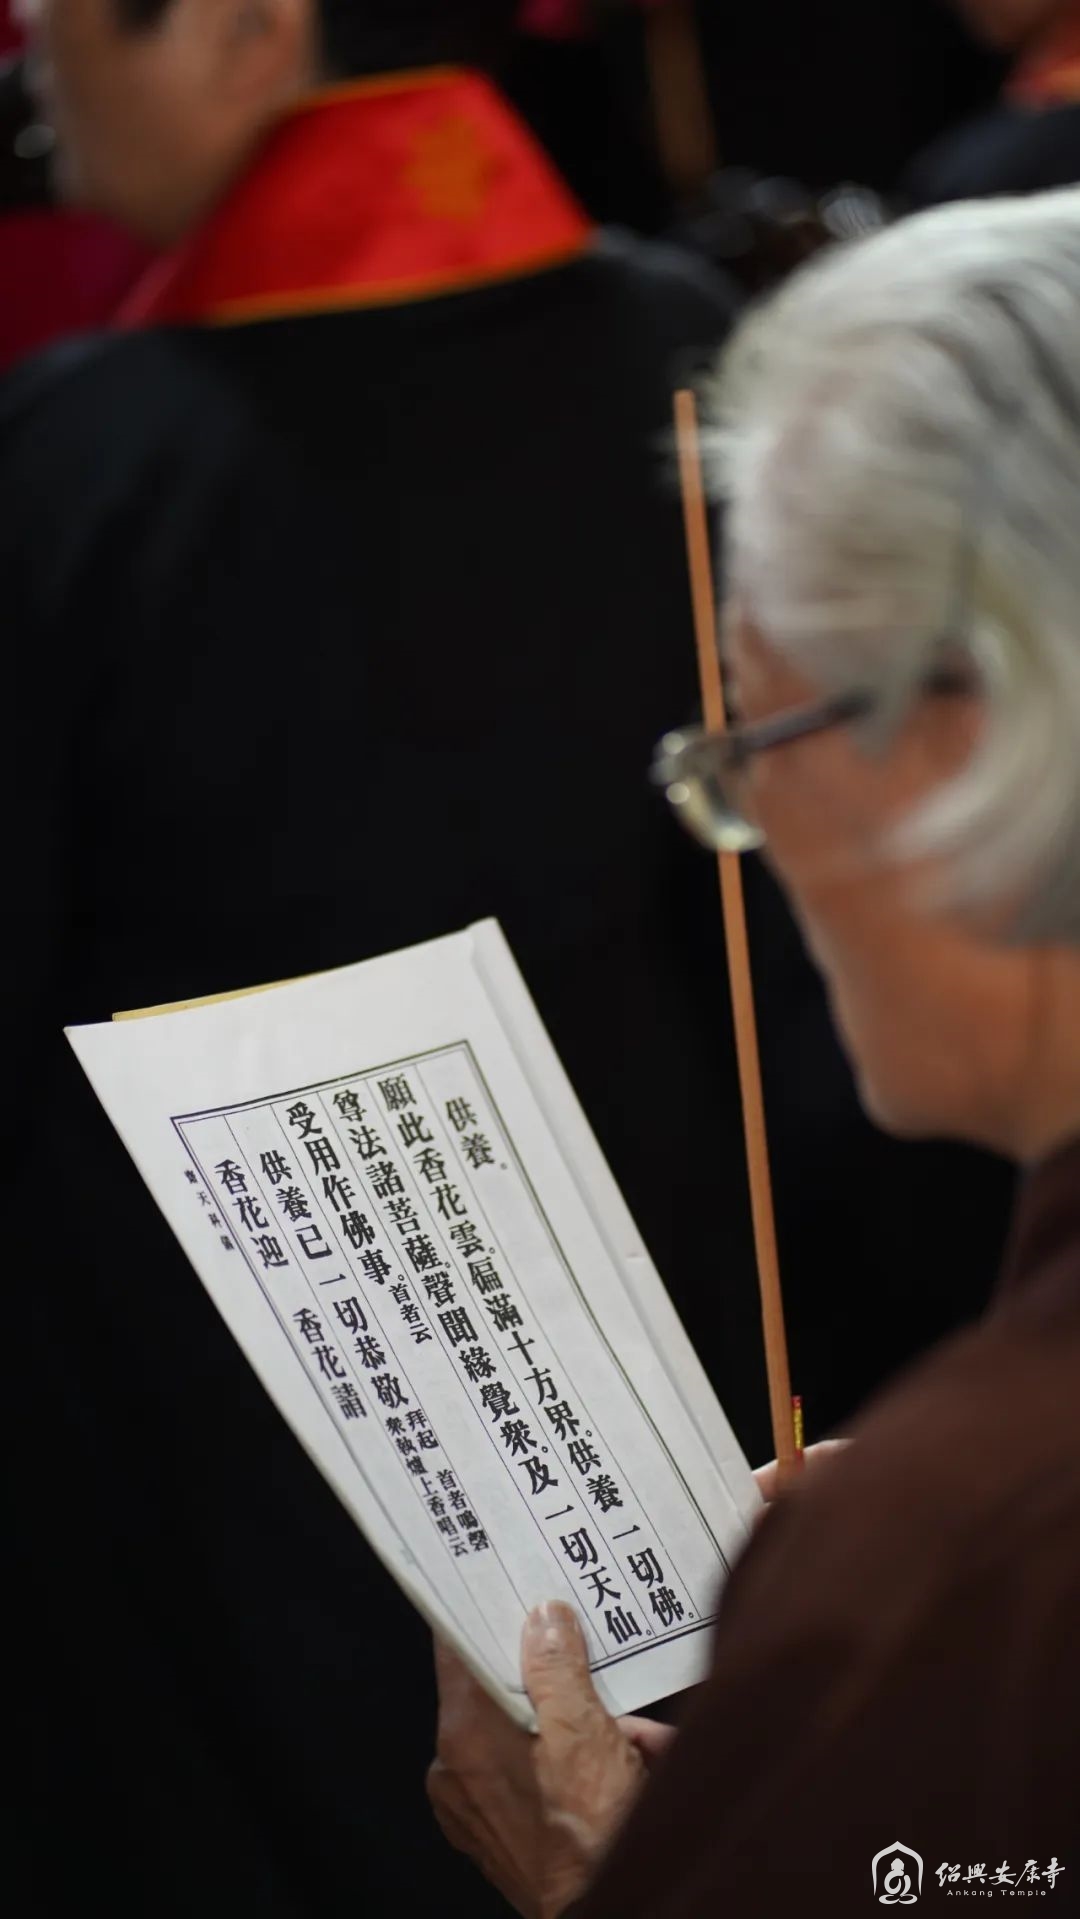 供養。
願此香花雲。徧滿十方界。供養一切佛。
尊法諸菩薩。聲聞緣覺衆。及一切天仙。
受用作佛事。首者云
供養已一切恭敬 拜起 首者鳴磬
衆執爐上香唱云
香花迎 香花請
齋天科儀
紹興安康寺
Ankang Temple